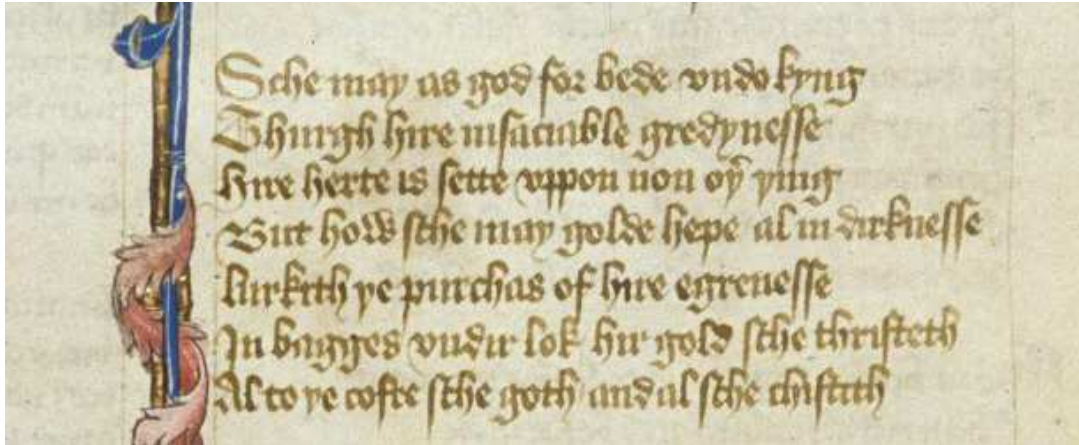 Sche may as god for bede vndo kyng
Thurgh hire insaciable gredynesse
Hire herte is sette vppon non oþ̉ þing
But how sche may golde hepe al in dirknesse
lurkith þe purchas of hire egrenesse
In bagges vndir lok hir gold sche thristeth
Al to þe cofre sche goth and al sche chistith